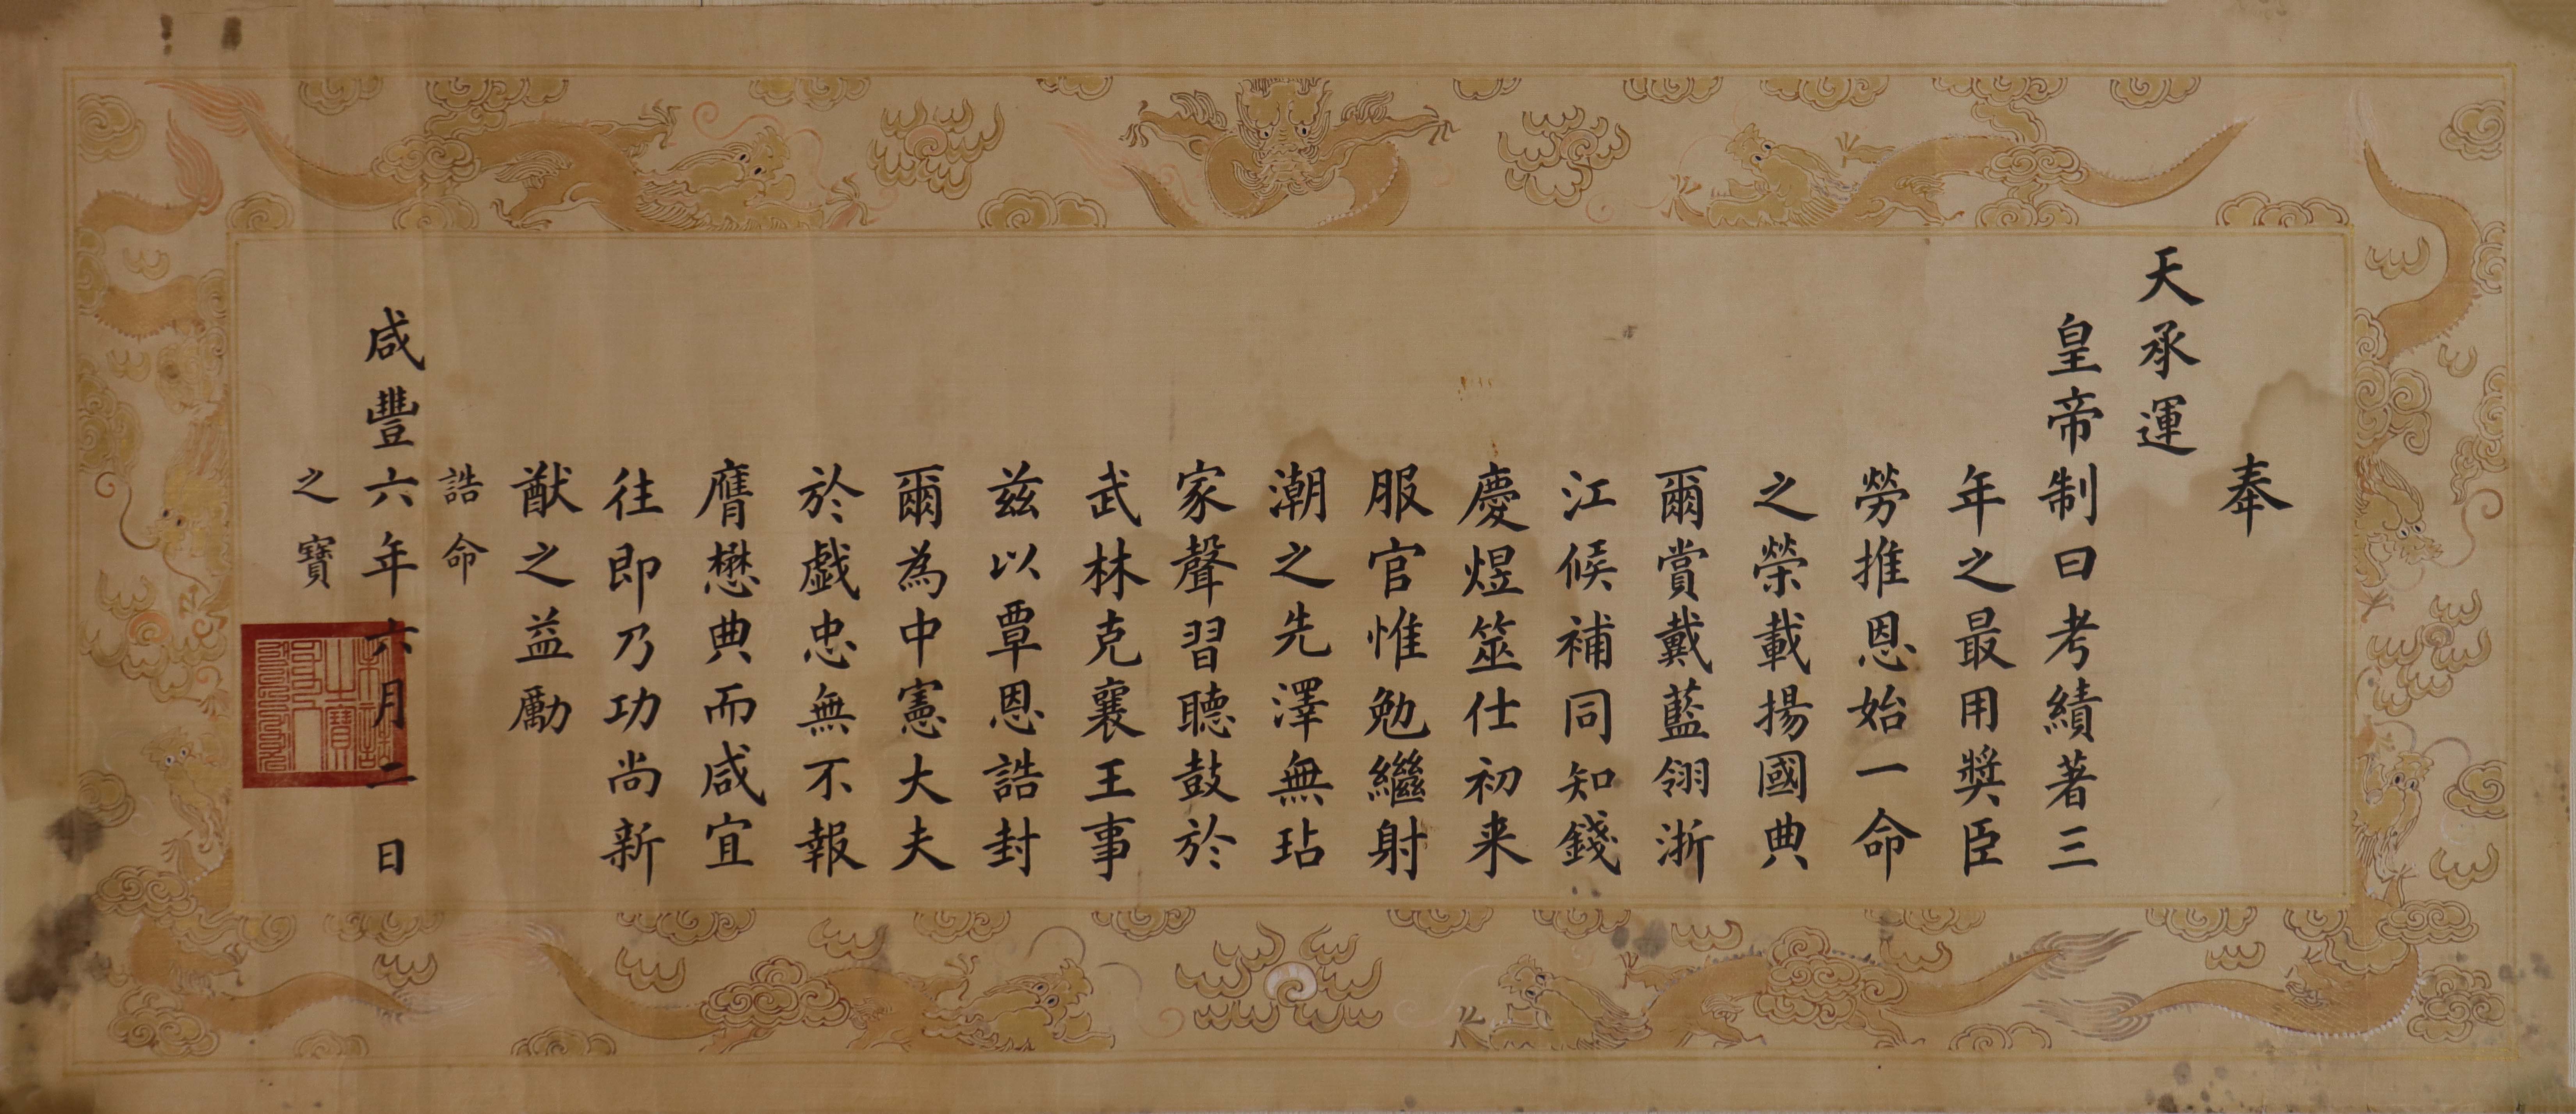 奉
天承運
皇帝制曰考績著三
年之最用獎臣
勞推恩始一命
之榮載揚國典
爾賞戴藍翎浙
江候補同知錢
慶煜筮仕初来
服官惟勉繼射
潮之先澤無玷
家聲習聽鼓於
武林克襄王事
兹以覃恩誥封
爾為中憲大夫
於戲忠無不報
膺懋典而咸宜
往即乃功尚新
猷之益勵
誥命
咸豐六年六月二日
之寶